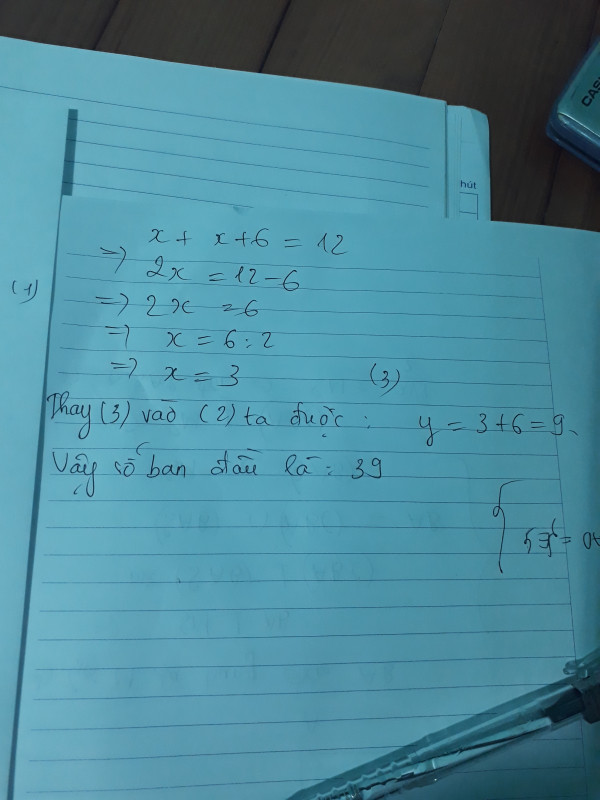 x + x+6 = 12
=> 2x = 12-6
(1)
=> 2x = 6
=> x = 6:2
=> x = 3 (3)
Thay (3) vào (2) ta được: y = 3+6=9.
Vậy số ban đầu là: 39
hút
CAS